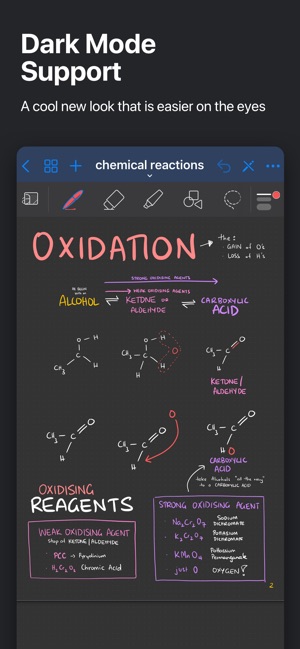 Dark Mode
Support
A cool new look that is easier on the eyes
chemical reactions
OXIDATION
the:
· GAIN of O's
· LOSS of H's
STRONG OXIDISING AGENTS
WEAK OXIDISING AGENTS
ALCOHOL
KETONE or
ALDEHYDE
CARBOXYLIC
ACID
O - H
CH3 - C
H
CH3
O - H
CH3 - C
H
H
O
O
CH3 - C
KETONE/
ALDEHYDE
O
CH3 - C
H
O
O
CH3 - C
H
O
CH3 - C
H O
CARBOXYLIC
ACID
take Alcohols "all the way"
to a CARBOXYLIC ACID
OXIDISING
REAGENTS
WEAK OXIDISING AGENT
Stop at KETONE/ALDEHYDE
· PCC → Pyridinium
· H2Cr2O7 Chromic Acid
STRONG OXIDISING AGENT
· Na2Cr2O7 SODIUM
DICHROMATE
· K2Cr2O7 POTASSIUM
DICHROMATE
· KMnO4 Potassium
Permanganate
· just O OXYGEN?
2